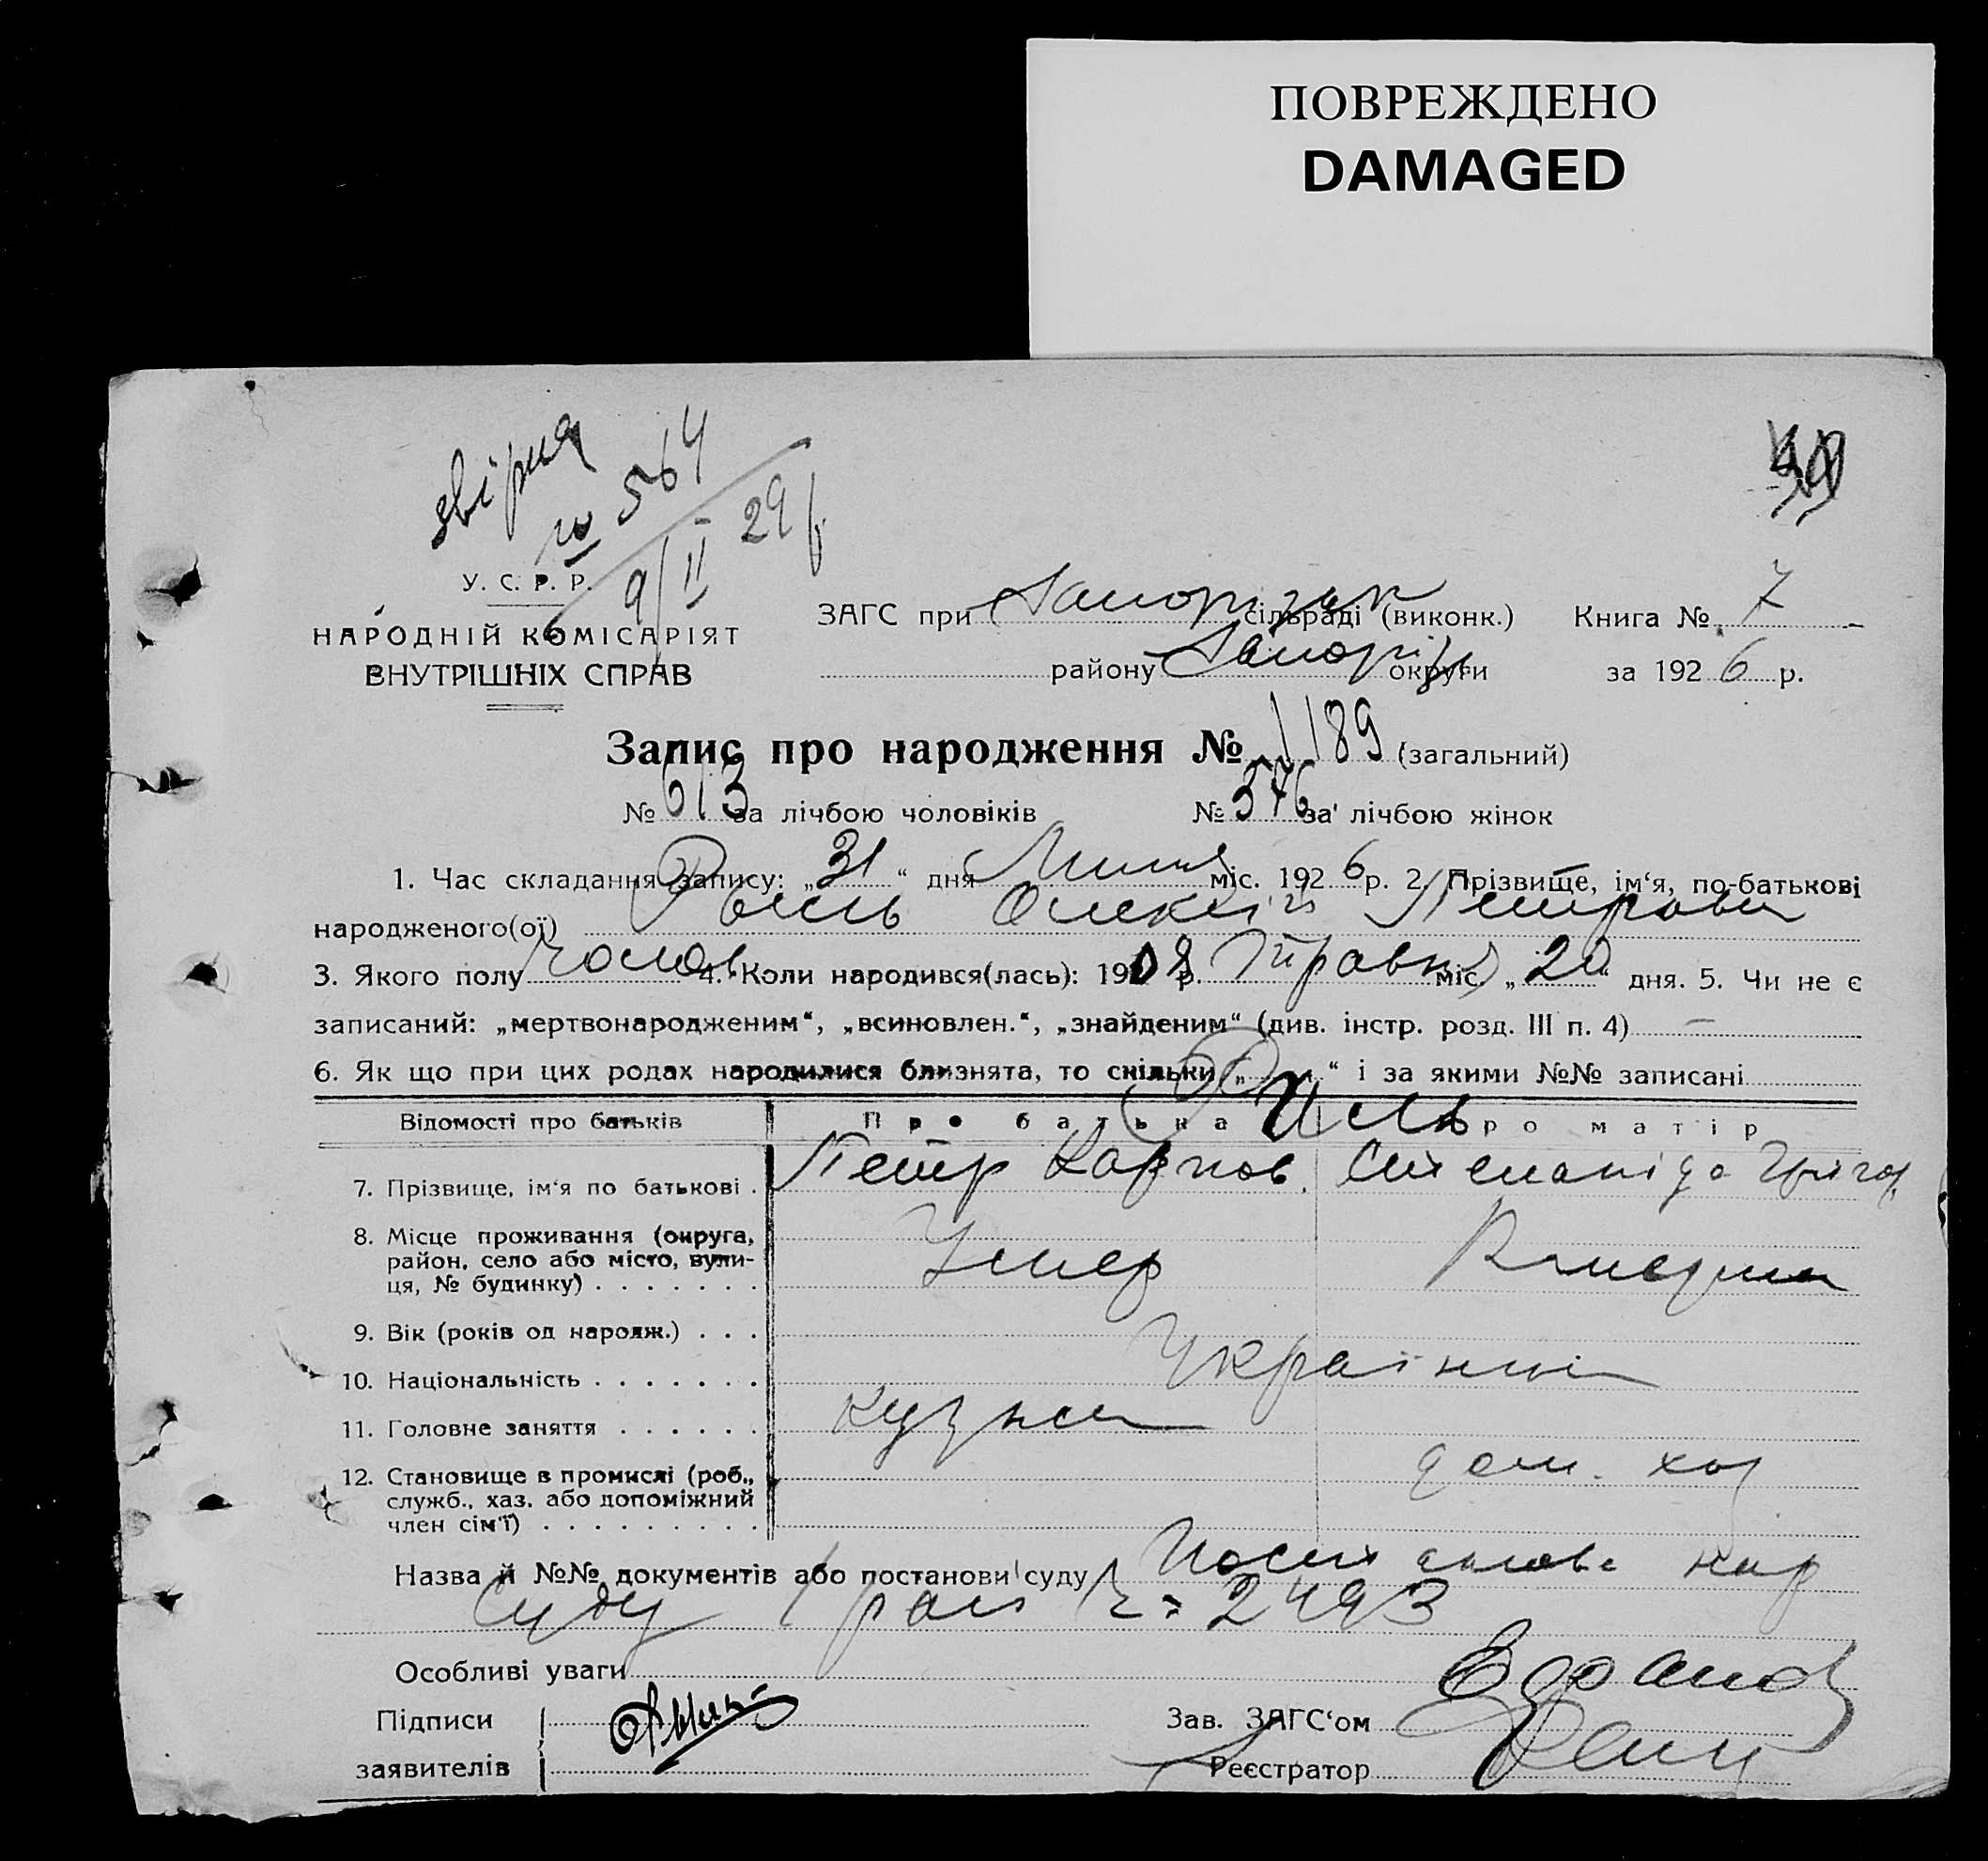 ПОВРЕЖДЕНО
DAMAGED
звірка
№ 564
9/II - 29 р
У. С. Р. Р.
НАРОДНІЙ КОМІСАРІЯТ
ВНУТРІШНІХ СПРАВ
ЗАГС при Запорізьк сільраді (виконк.) Книга № 7
району Запоріз округи за 1926 р.
Запис про народження № 1189 (загальний)
№ 613 за лічбою чоловіків № 576 за лічбою жінок
1. Час складання запису: „31“ дня Липня міс. 1926 р. 2. Прізвище, ім‘я, по-батькові
народженого(ої) Риль Олексій Петрович
3. Якого полу чолов 4. Коли народився(лась): 1908 р. Травня міс. „20“ дня. 5. Чи не є
записаний: „мертвонародженим“, „всиновлен.“, „знайденим“ (див. інстр. розд. III п. 4) —
6. Як що при цих родах народилися близнята, то скільки „ “ і за якими №№ записані
Відомості про батьків Про батька Про матір
Риль
7. Прізвище, ім‘я по батькові . Петр Карпов. Степаніда Григор.
8. Місце проживання (округа,
район, село або місто, вули-
ця, № будинку) . . . . . . .
Умер
9. Вік (років од народж.) . . .
10. Національність . . . . . . . Українці
11. Головне заняття . . . . . . коузня
12. Становище в промислі (роб.,
служб., хаз. або допоміжний
член сім‘ї) . . . . . . . . .
дом. хоз
Назва й №№ документів або постанови суду Постанова нар
Суду 1 рай 2493
Особливі уваги
Підписи
заявителів
Зав. ЗАГС‘ом
Реєстратор